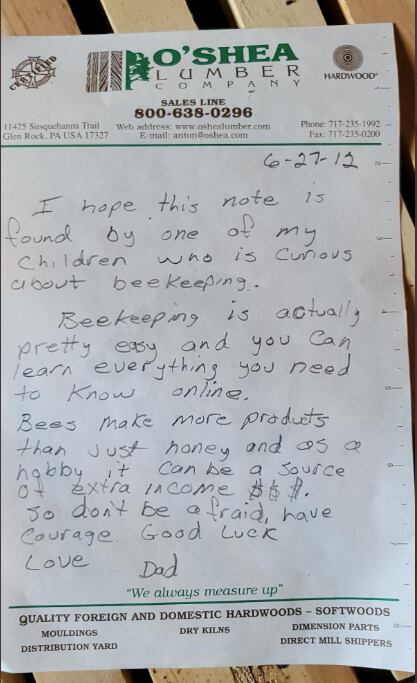 CERTIFIED
O'SHEA
LUMBER
COMPANY
HARDWOOD
SALES LINE
800-638-0296
11425 Susquehanna Trail
Glen Rock, PA USA 17327
Web address: www.oshealumber.com
E-mail: anton@oshea.com
Phone: 717-235-1992
Fax: 717-235-0200
6-27-12
I hope this note is
found by one of my
children who is curious
about beekeeping.
Beekeeping is actually
pretty easy and you can
learn everything you need
to know online.
Bees make more products
than just honey and as a
hobby it can be a source
of extra income $$$.
So don't be afraid, have
courage. Good Luck
Love Dad
"We always measure up"
QUALITY FOREIGN AND DOMESTIC HARDWOODS – SOFTWOODS
MOULDINGS DRY KILNS DIMENSION PARTS
DISTRIBUTION YARD DIRECT MILL SHIPPERS